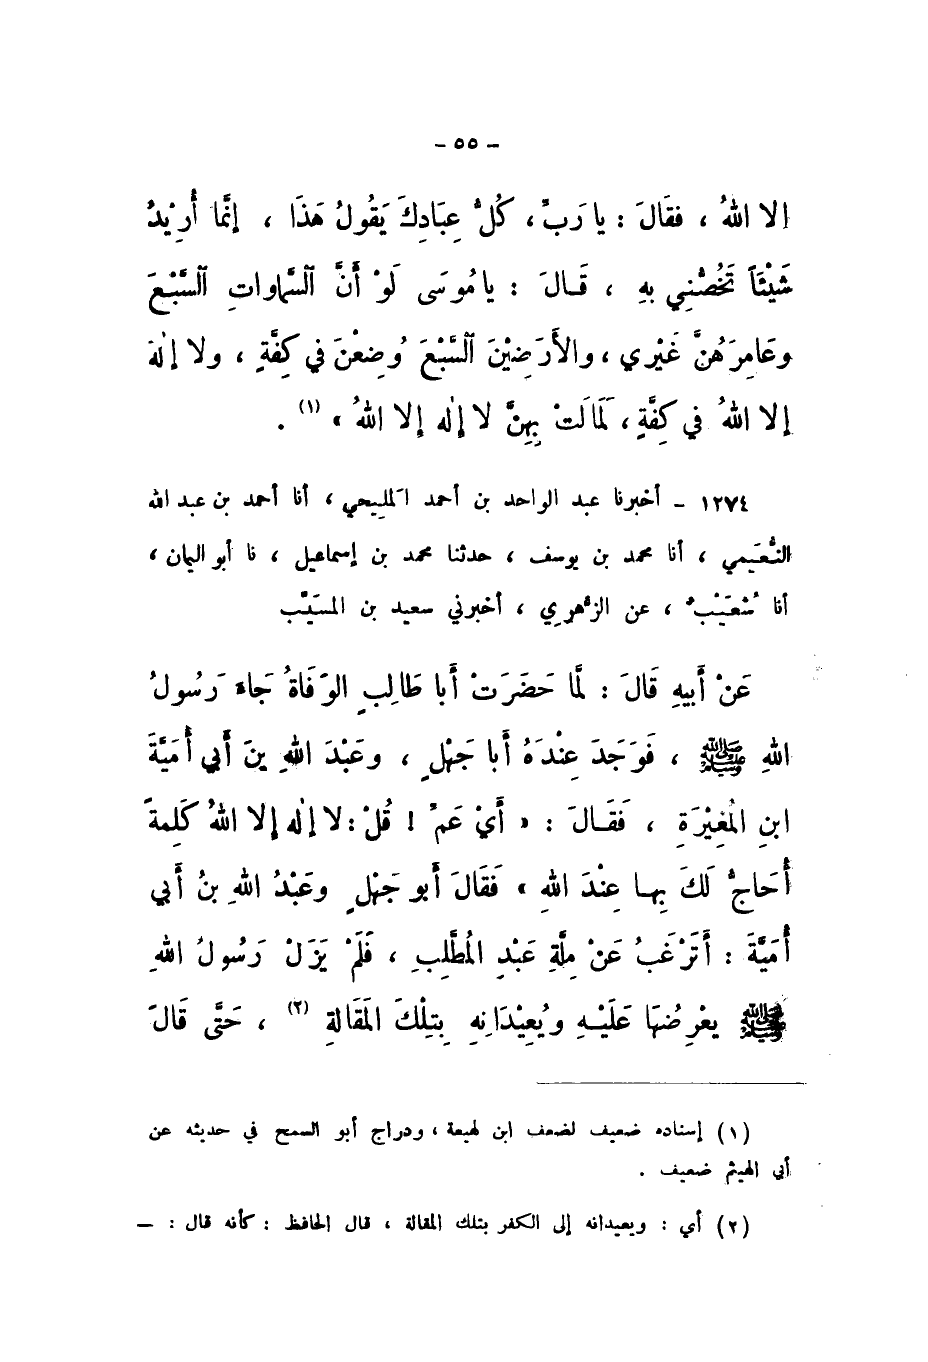 - ٥٥ -
إلا اللهُ ، فقَالَ : يا رَبِّ ، كُلُّ عِبَادِكَ يَقُولُ هَذَا ، إنَّما أُرِيْدُ
شَيْئَاً تَخُصُّنِي بِهِ ، قَـالَ : يا مُوسَى لَوْ أَنَّ السَّماواتِ السَّبْعَ
وعَامِرَهُنَّ غَيْري ، والأَرَضِيْنَ السَّبْعَ وُضِعْنَ في كِفَّةٍ ، ولا إلهَ
إلا اللهُ في كِفَّةٍ ، لَمَالَتْ بِهِنَّ لا إلٰه إلا اللهُ » (١) .
١٢٧٤ - أخبرنا عبد الواحد بن أحمد المَلِيحي ، أنا أحمد بن عبد الله
النُّعَيمي ، أنا محمد بن يوسف ، حدثنا محمد بن إسماعيل ، نا أبو اليمان ،
أنا شُعَيْبٌ ، عن الزُّهري ، أخبرني سعيد بن المسَيَّب
عَنْ أَبيهِ قَالَ : لَمَّا حَضَرَتْ أَبا طَالِبٍ الوَفَاةُ جَاءَ رَسُولُ
اللهِ ﷺ ، فَوَجَدَ عِنْدَهُ أَبا جَهْلٍ ، وعَبْدَ اللهِ بنَ أَبي أُمَيَّةَ
ابنِ المُغِيْرَةِ ، فَقَـالَ : « أَيْ عَمِّ ! قُلْ : لا إلٰه إلا اللهُ كَلِمةً
أُحَاجُّ لَكَ بِهـا عِنْدَ اللهِ » فَقَالَ أَبو جَهْلٍ وعَبْدُ اللهِ بنُ أَبي
أُمَيَّةَ : أَتَرْغَبُ عَنْ مِلَّةِ عَبْدِ المُطَّلِبِ ، فَلَمْ يَزَلْ رَسُولُ اللهِ
ﷺ يعْرِضُهَا عَلَيْـهِ ويُعِيْدَانِهِ بِتِلْكَ المَقَالَةِ (٢) ، حَتَّى قَالَ
(١) إسناده ضعيف لضعف ابن لهيعة ، ودراج أبو السمح في حديثه عن
أبي الهيثم ضعيف .
(٢) أي : ويعيدانه إلى الكفر بتلك المقالة ، قال الحافظ : كأنه قال : -